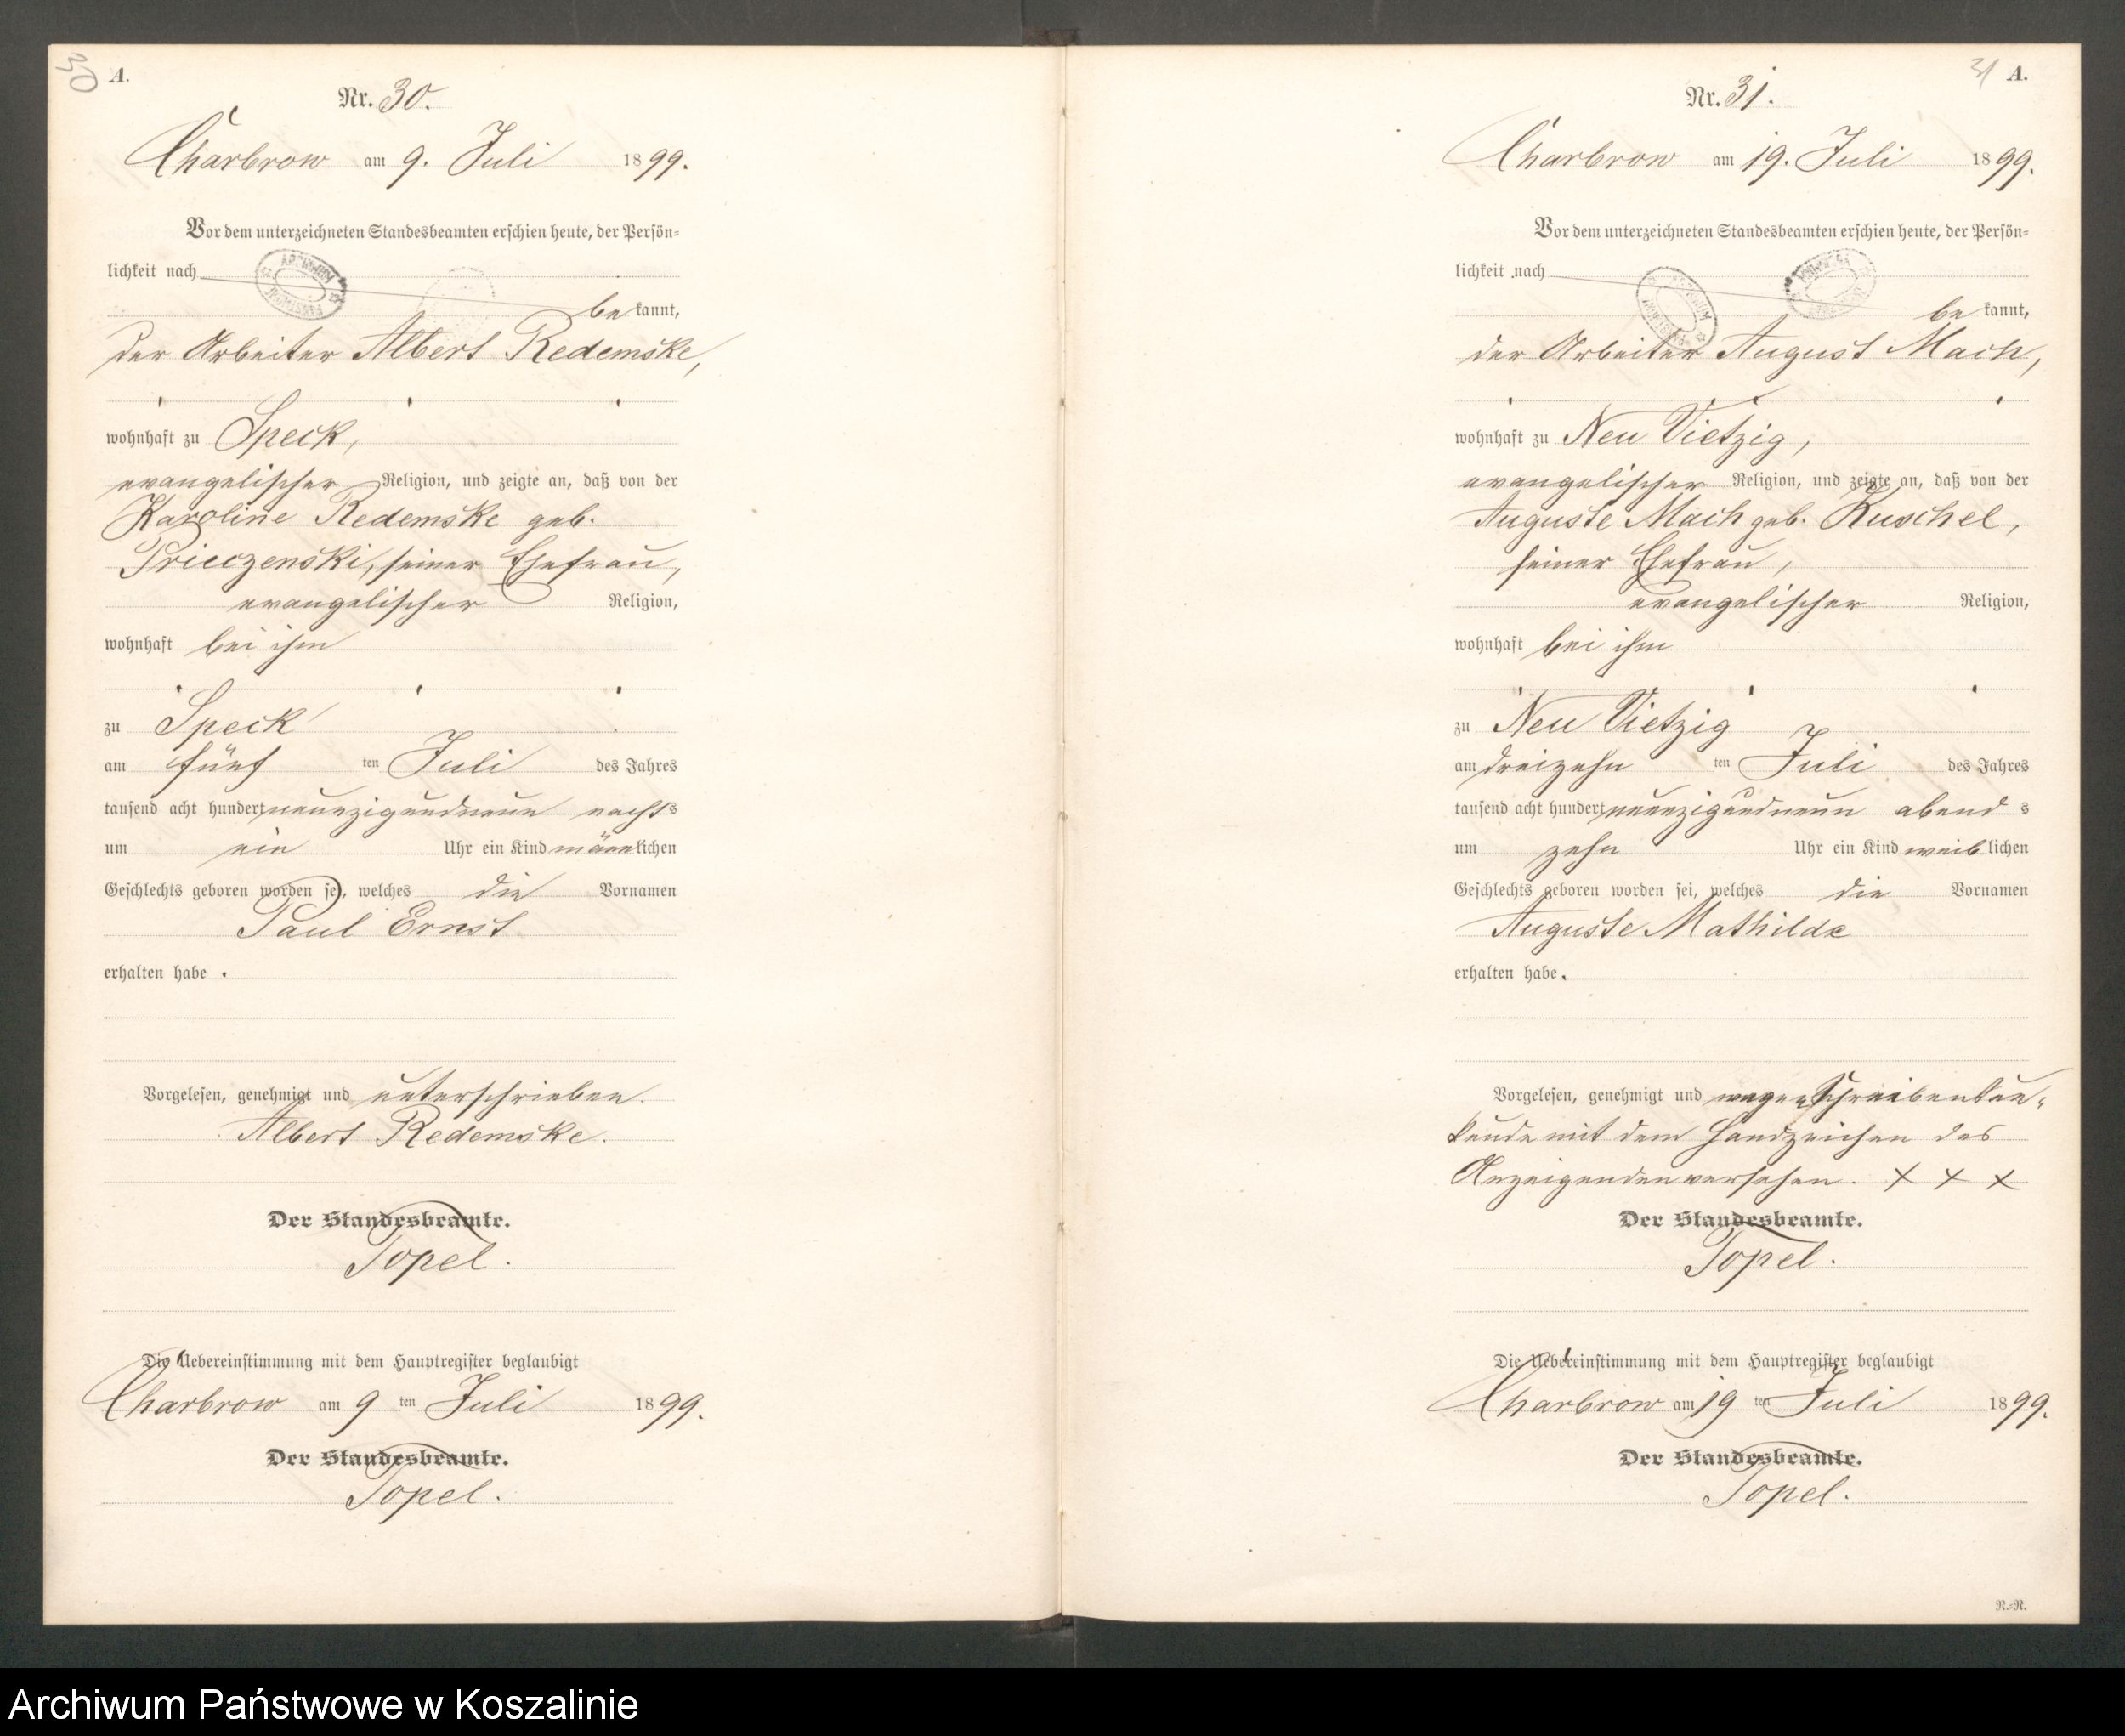 30
A.
Nr. 30.
Charbrow am 9. Juli 1899.
Vor dem unterzeichneten Standesbeamten erschien heute, der Persön=
lichkeit nach
be kannt,
der Arbeiter Albert Redemske,
wohnhaft zu Speck,
evangelischer Religion, und zeigte an, daß von der
Karoline Redemske geb.
Prieczenski, seiner Ehefrau,
evangelischer Religion,
wohnhaft bei ihm
zu Speck
am fünf ten Juli des Jahres
tausend acht hundert neunzigundneun nachts
um ein Uhr ein Kind männlichen
Geschlechts geboren worden sei, welches die Vornamen
Paul Ernst
erhalten habe.
Vorgelesen, genehmigt und unterschrieben.
Albert Redemske.
Der Standesbeamte.
Topel.
Die Uebereinstimmung mit dem Hauptregister beglaubigt
Charbrow am 9 ten Juli 1899.
Der Standesbeamte.
Topel.
31 A.
Nr. 31.
Charbrow am 19. Juli 1899.
Vor dem unterzeichneten Standesbeamten erschien heute, der Persön=
lichkeit nach
be kannt,
der Arbeiter August Mach,
wohnhaft zu Neu Vietzig,
evangelischer Religion, und zeigte an, daß von der
Auguste Mach geb. Kuschel,
seiner Ehefrau,
evangelischer Religion,
wohnhaft bei ihm
zu Neu Vietzig
am dreizehn ten Juli des Jahres
tausend acht hundert neunzigundneun abend s
um zehn Uhr ein Kind weiblichen
Geschlechts geboren worden sei, welches die Vornamen
Auguste Mathilde
erhalten habe.
Vorgelesen, genehmigt und wegen Schreibensun=
kunde mit dem Handzeichen des
Anzeigenden versehen. x x x
Der Standesbeamte.
Topel.
Die Uebereinstimmung mit dem Hauptregister beglaubigt
Charbrow am 19 ten Juli 1899.
Der Standesbeamte.
Topel.
R.=R.
Archiwum Państwowe w Koszalinie